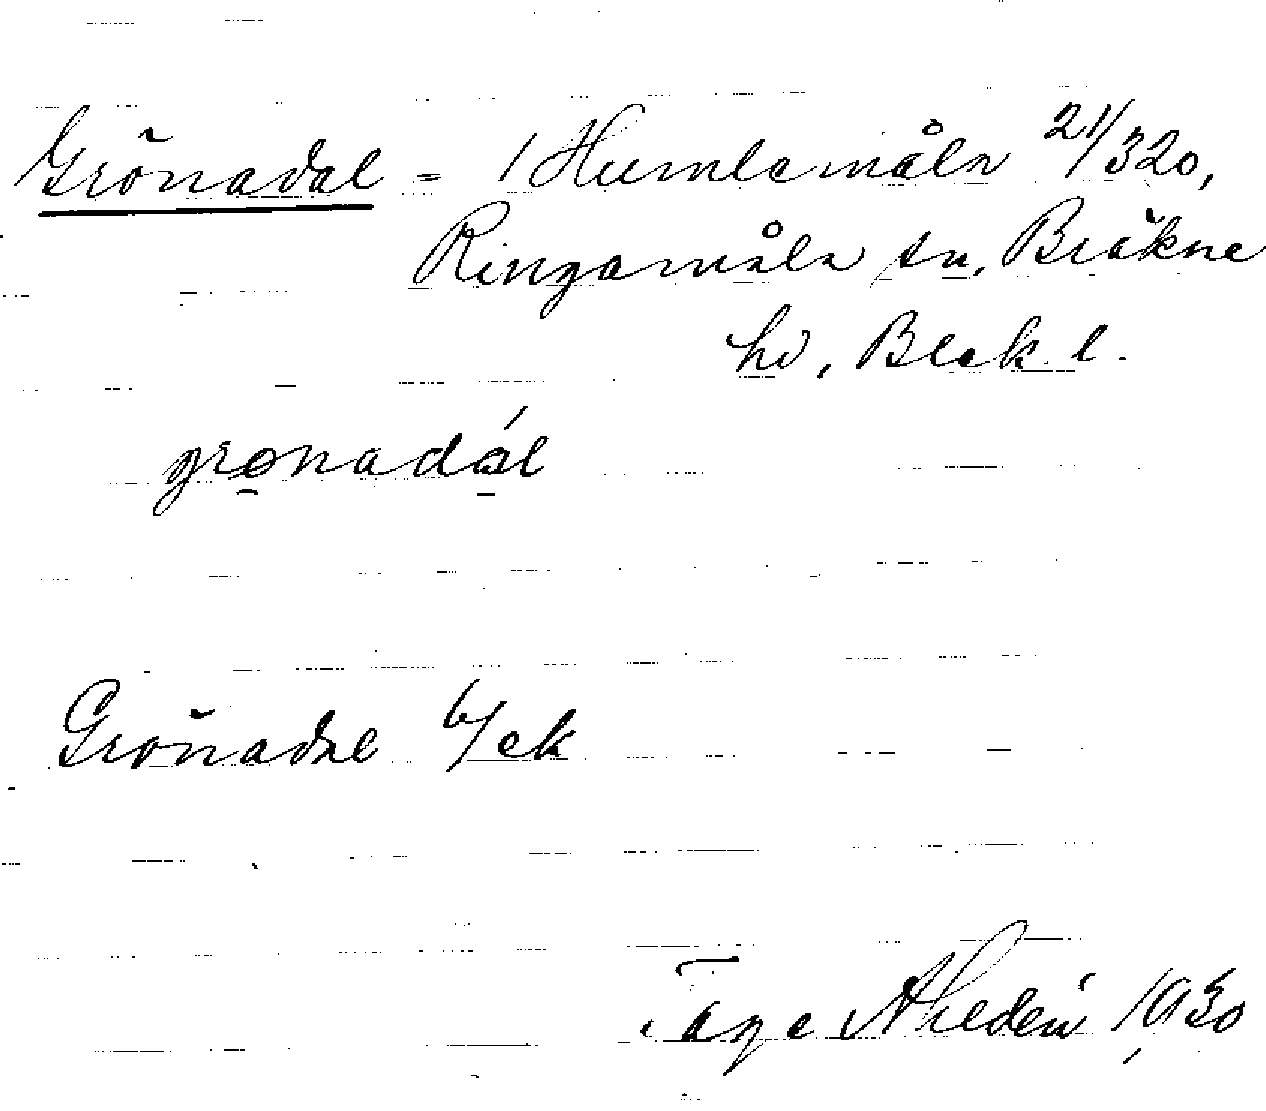 Grönadal - 1 Humlamåla 21/320,
Ringamåla sn, Bräkne
hd, Blek. l.
grǫnadǫ́l
Grönadal 6/ek
Tage Ahldén 1930